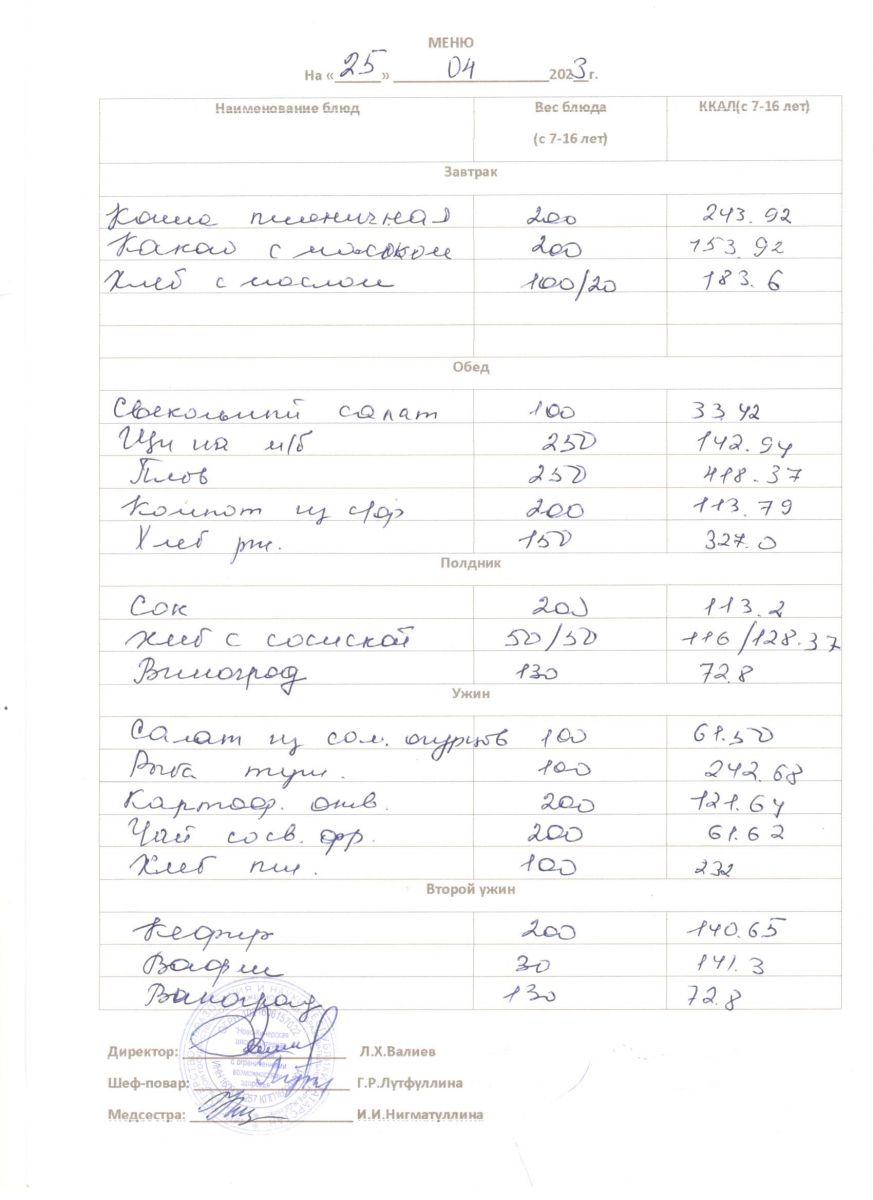 МЕНЮ
На « 25 » 04 2023 г.
Наименование блюд Вес блюда (с 7-16 лет) ККАЛ(с 7-16 лет)
Завтрак
Каша пшеничная 200 243.92
Какао с молоком 200 153.92
Хлеб с маслом 100/20 183.6
Обед
Свекольный салат 100 33.42
Щи на м/б 250 142.94
Плов 250 418.37
Компот из с/ф 200 113.79
Хлеб рж. 150 327.0
Полдник
Сок 200 113.2
Хлеб с сосиской 50/50 116/128.37
Виноград 130 72.8
Ужин
Салат из сол. огурцов 100 61.50
Рыба туш. 100 242.68
Картоф. отв. 200 121.64
Чай со св. фр. 200 61.62
Хлеб пш. 100 232
Второй ужин
Кефир 200 140.65
Вафли 30 141.3
Виноград 130 72.8
Директор: Л.Х.Валиев
Шеф-повар: Г.Р.Лутфуллина
Медсестра: И.И.Нигматуллина